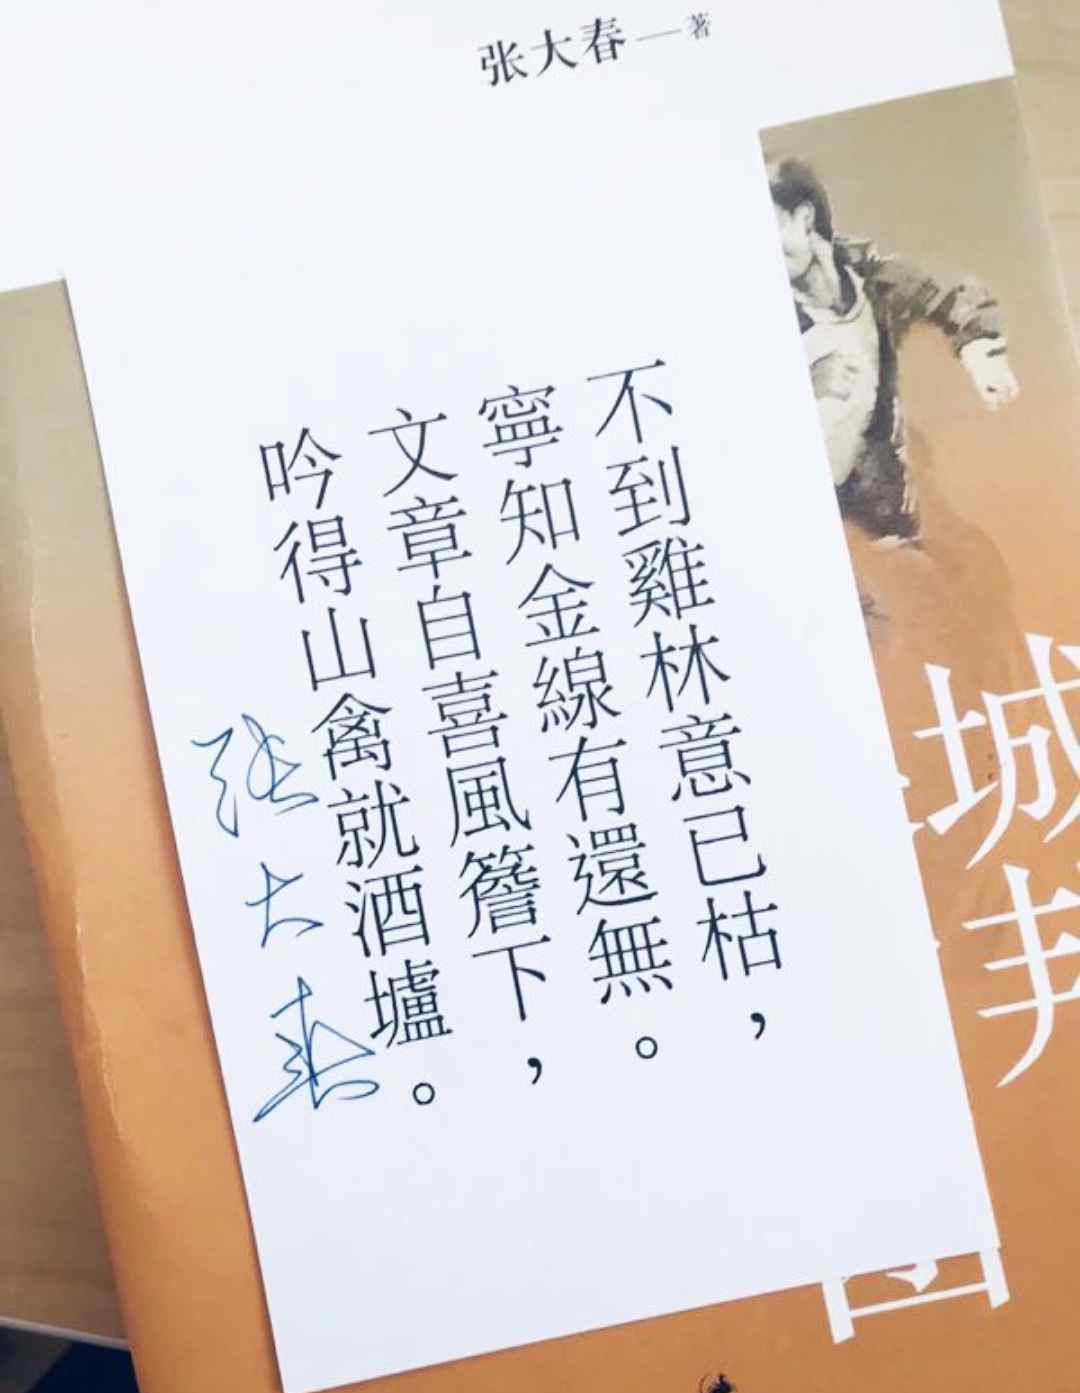 张大春——著
不到雞林意已枯，
寧知金線有還無。
文章自喜風簷下，
吟得山禽就酒壚。
張大春
城邦